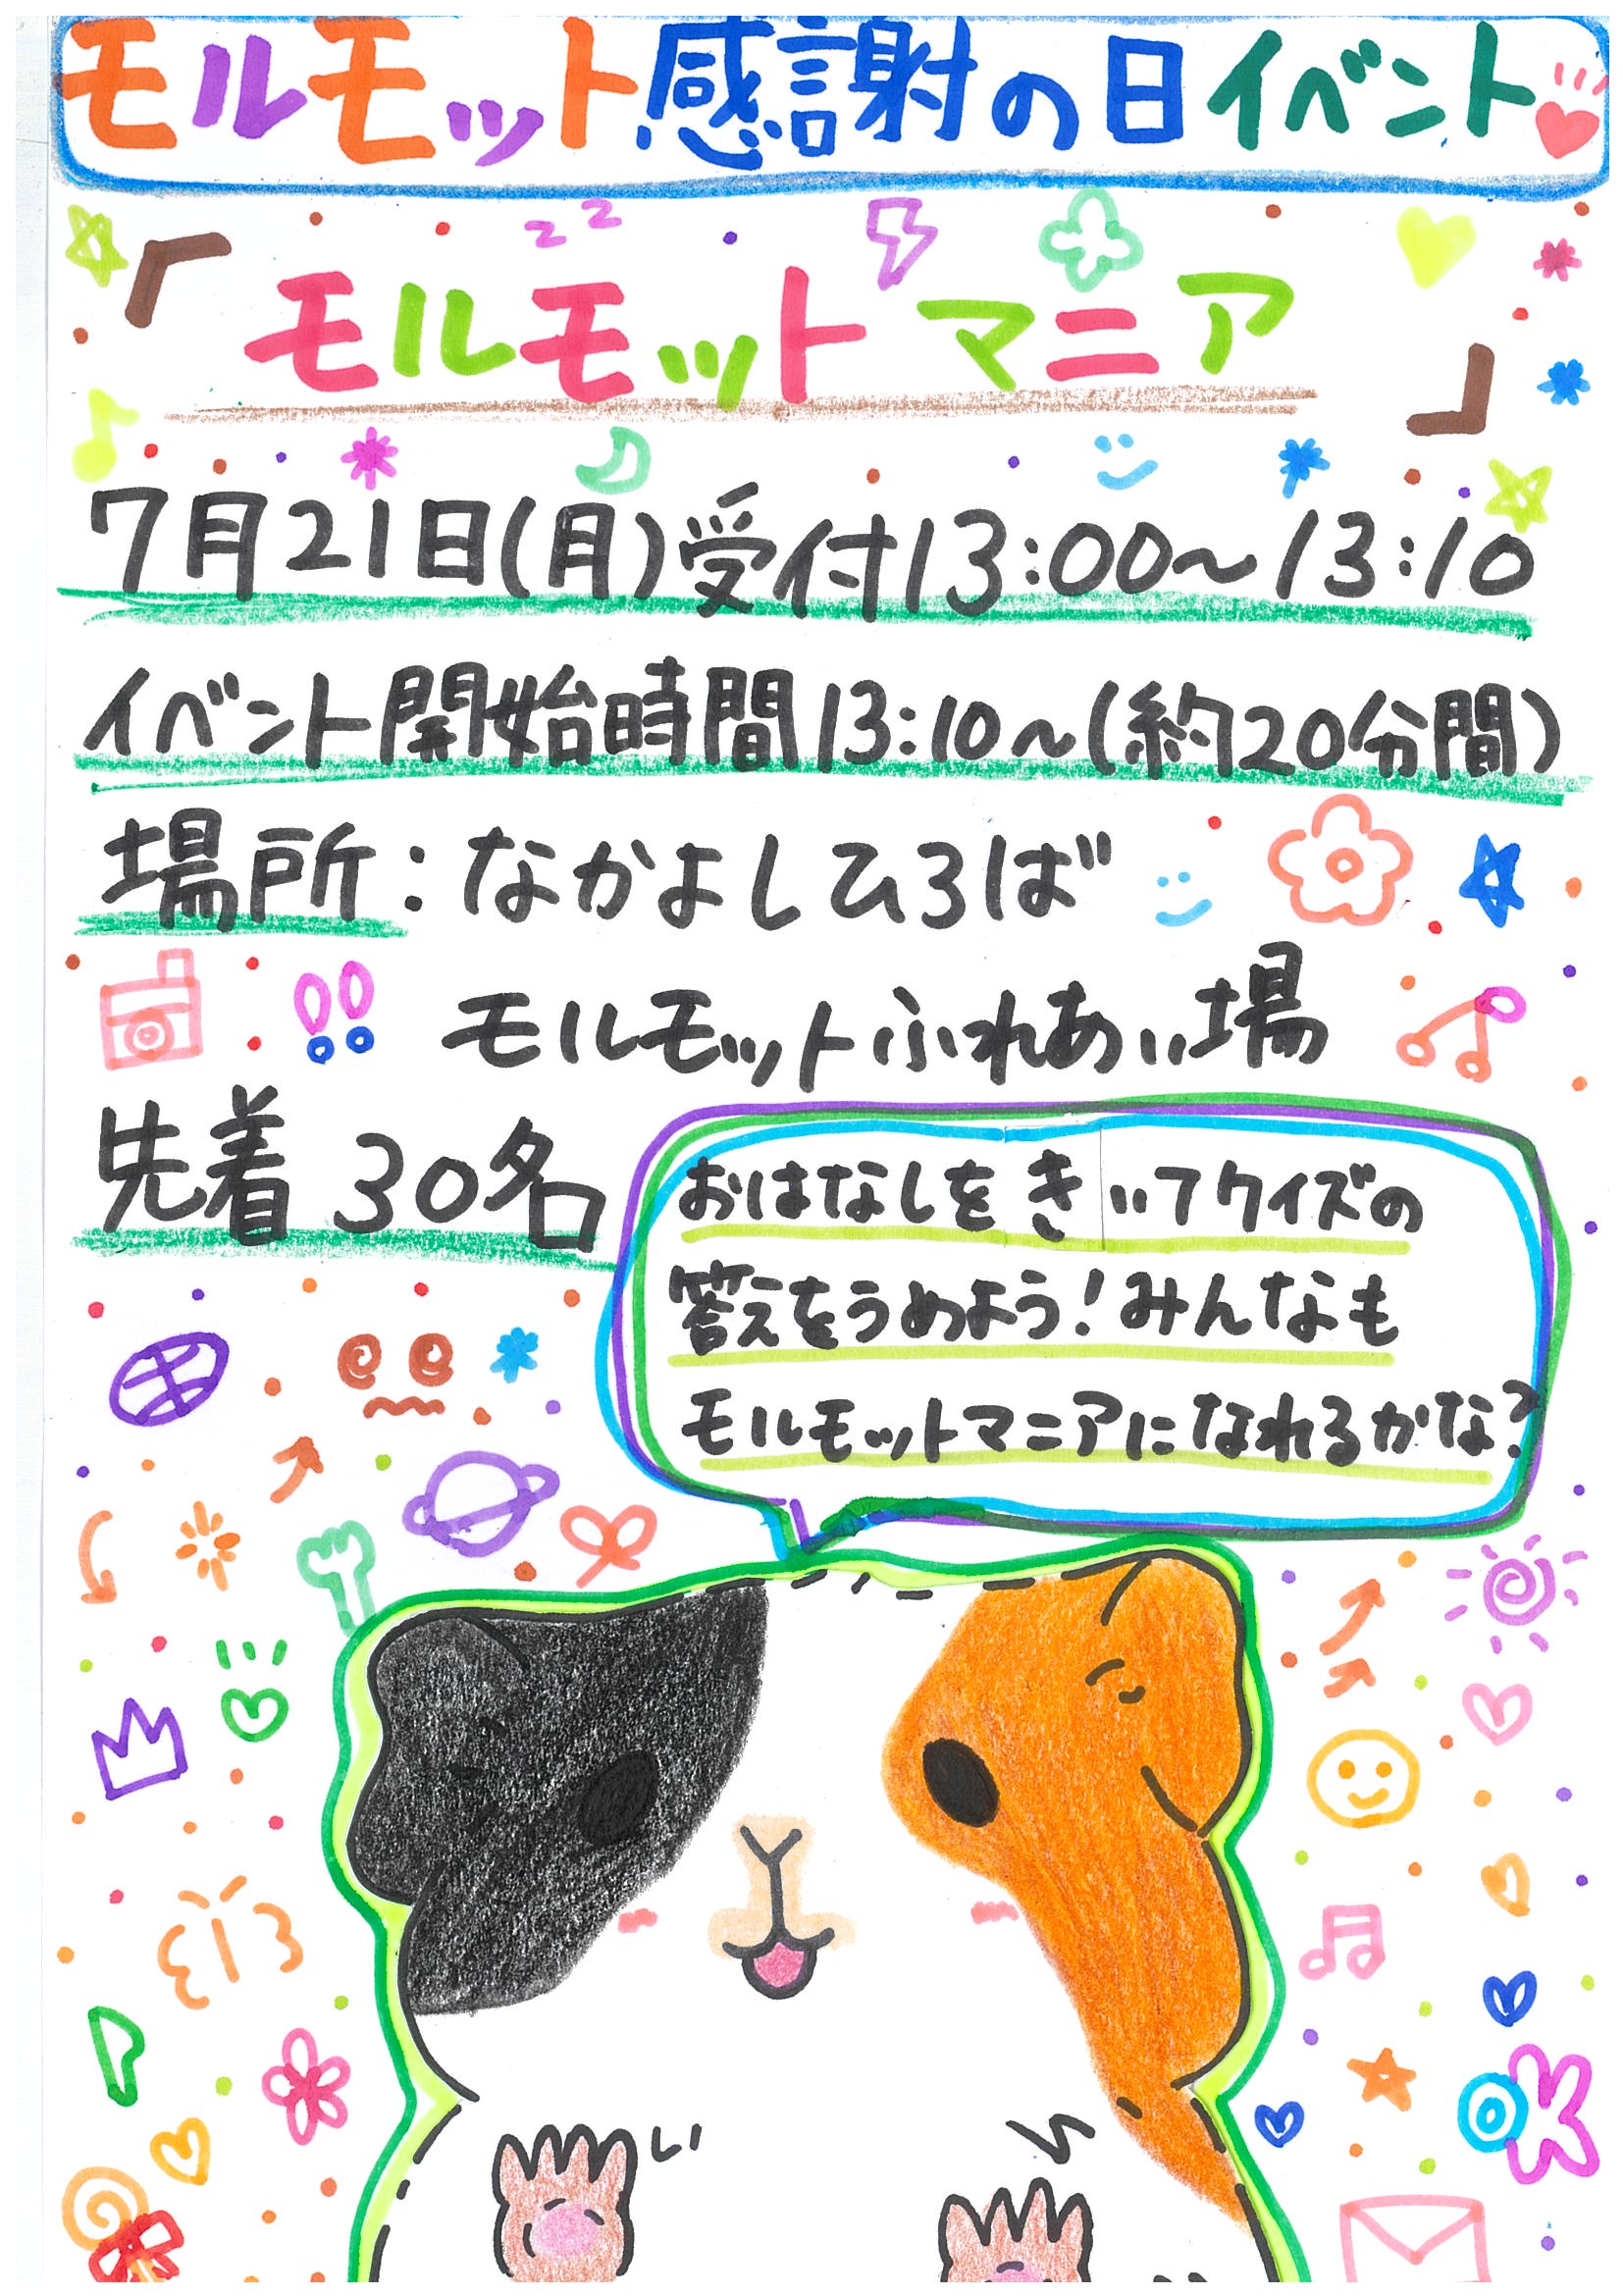 モルモット感謝の日イベント
『モルモットマニア』
7月21日(月)受付13:00~13:10
イベント開始時間13:10~(約20分間)
場所:なかよしひろば
モルモットふれあい場
先着 30名
おはなしをきいてクイズの
答えをうめよう!みんなも
モルモットマニアになれるかな?
zz
OK